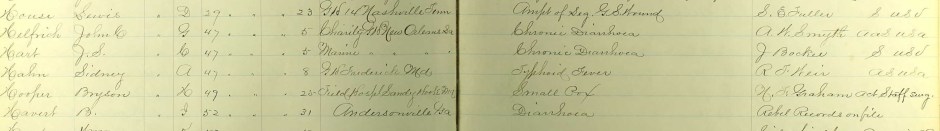 House Lewis " D 29 " " 23 G.H. 14 Nashville Tenn Ampt of Leg. G.S. Wound S. E. Fuller S USV
Helfrich John C " G 47 " " 5 Charity H. New Orleans La Chronic Diarrhoea A. W. Smyth aas usa
Hart J. S. " C 47 " " 5 Marine " " " Chronic Diarrhoea J Bockee S USV
Hahn Sidney " A 47 " " 8 G.H. Frederick Md. Typhoid Fever R. F. Weir AS USA
Hooper Bryson " K 49 " " 26 Field Hospl Sandy Hook Md Small Pox Graham Act Staff Surg.
Havert B. " G 52 " " 31 Andersonville Ga Diarrhoea Rebel Records on file